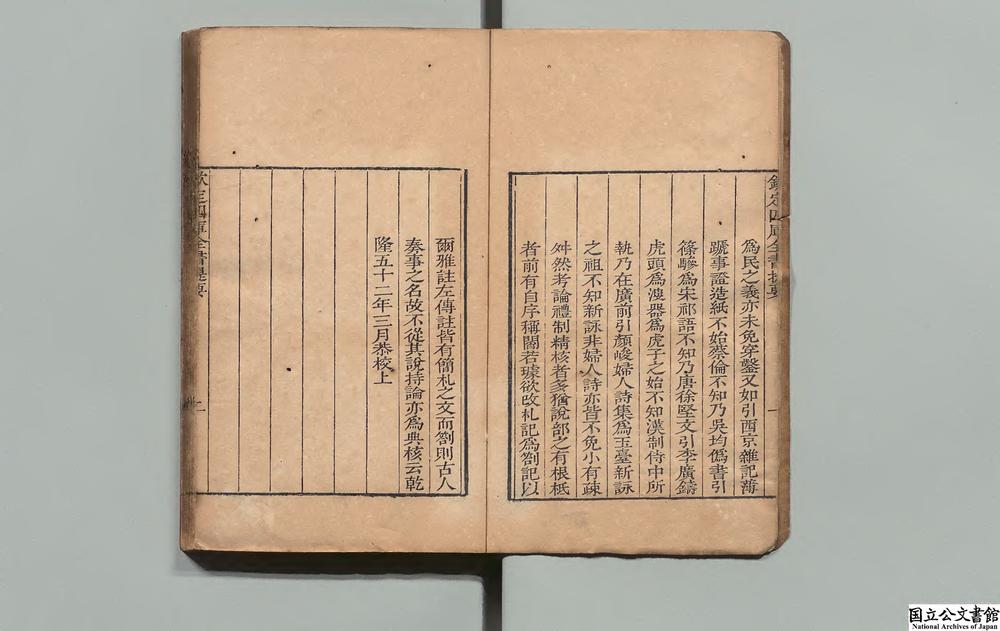 欽定四庫全書提要
爲民之義亦未免穿鑿又如引西京雜記薄
蹏事證造紙不始蔡倫不知乃吳均僞書引
篠驂爲宋祁語不知乃唐徐堅文引李廣鑄
虎頭爲溲器爲虎子之始不知漢制侍中所
執乃在廣前引顏峻婦人詩集爲玉臺新詠
之祖不知新詠非婦人詩亦皆不免小有疎
舛然考論禮制精核者多猶說部之有根柢
者前有自序稱閻若璩欲改札記爲劄記以
爾雅註左傳註皆有簡札之文而劄則古人
奏事之名故不從其說持論亦爲典核云乾
隆五十二年三月恭校上
欽定四庫全書提要
二
国立公文書館
National Archives of Japan